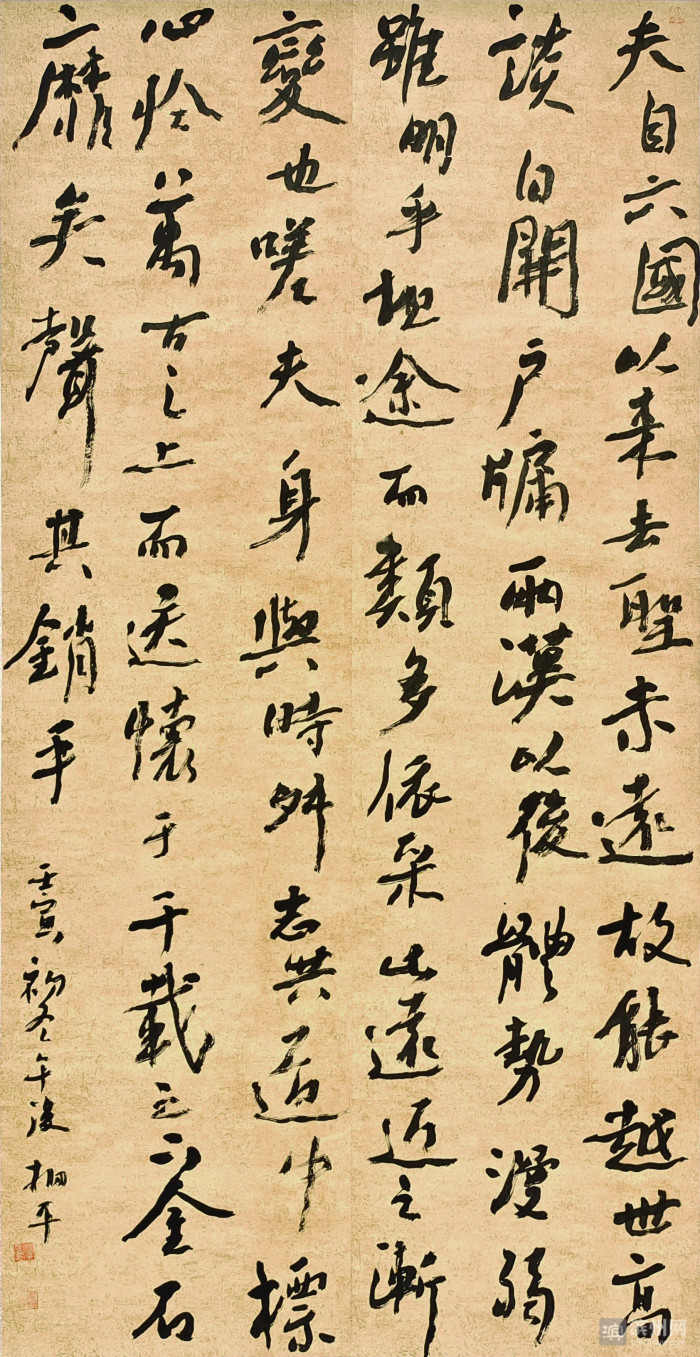 夫自六國以来去聖未遠故能越世高
談自開户牖兩漢以後體勢漫弱
雖明乎坦途而類多依采此遠近之漸
變也嗟夫身與時舛志共道申標
心於萬古之上而送懷于千載之下金石
靡矣聲其銷乎
壬寅初冬午後 平
滨州网